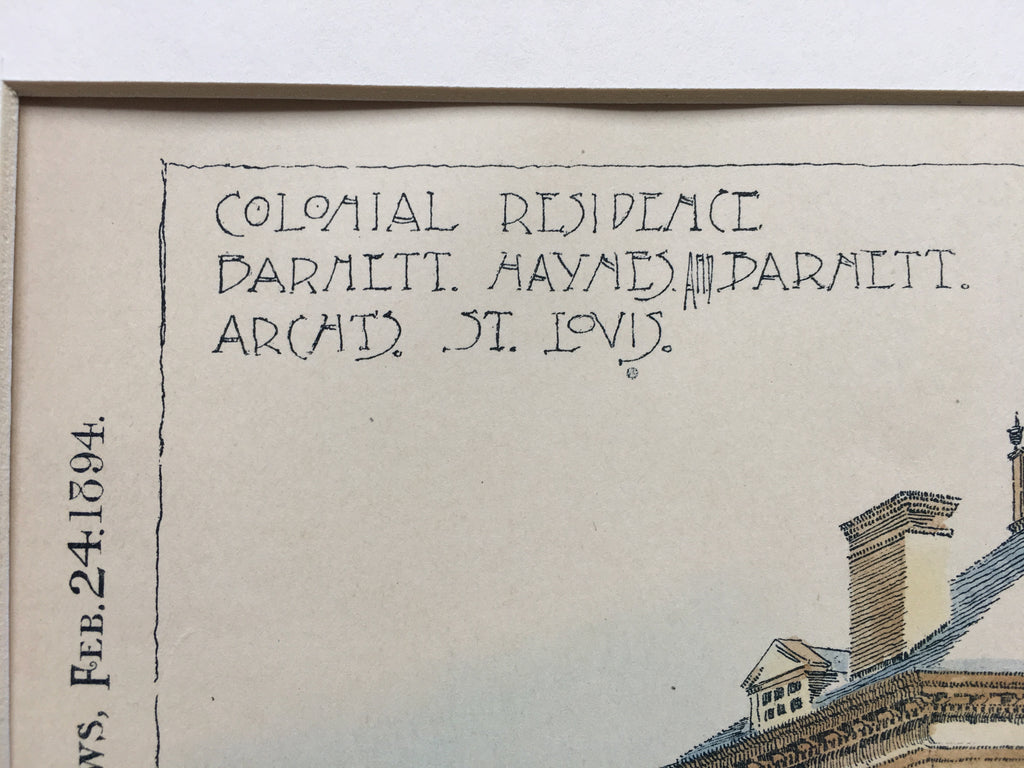 COLONIAL RESIDENCE
BARNETT. HAYNES. AND BARNETT.
ARCHTS. ST. LOVIS.
WS, FEB. 24. 1894.